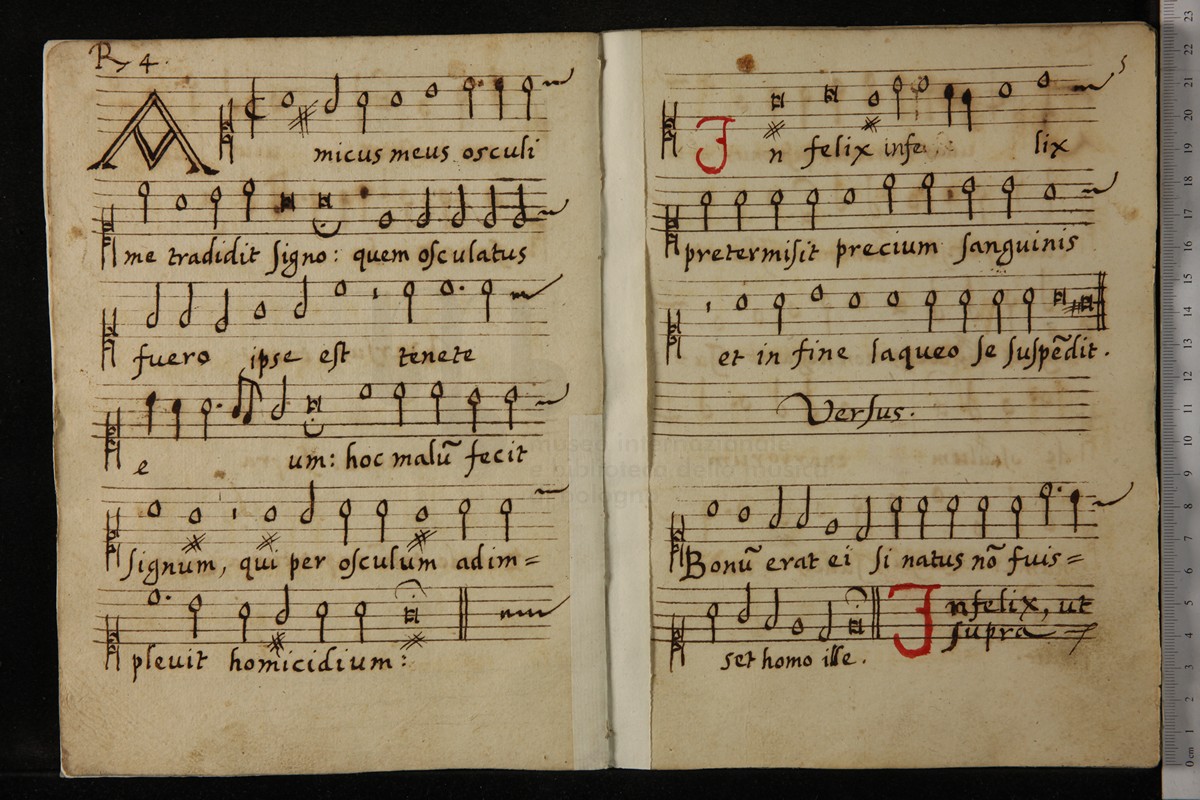 R. 4.
Amicus meus osculi
me tradidit signo: quem osculatus
fuero ipse est tenete
e um: hoc malũ fecit
signum, qui per osculum adim=
pleuit homicidium:
5
In felix infe lix
pretermisit precium sanguinis
et in fine laqueo se suspẽdit.
Versus.
Bonũ erat ei si natus nõ fuis=
set homo ille. Infelix, ut
supra
museo internazionale
e biblioteca della musica
di bologna
0 cm 1 2 3 4 5 6 7 8 9 10 11 12 13 14 15 16 17 18 19 20 21 22 23